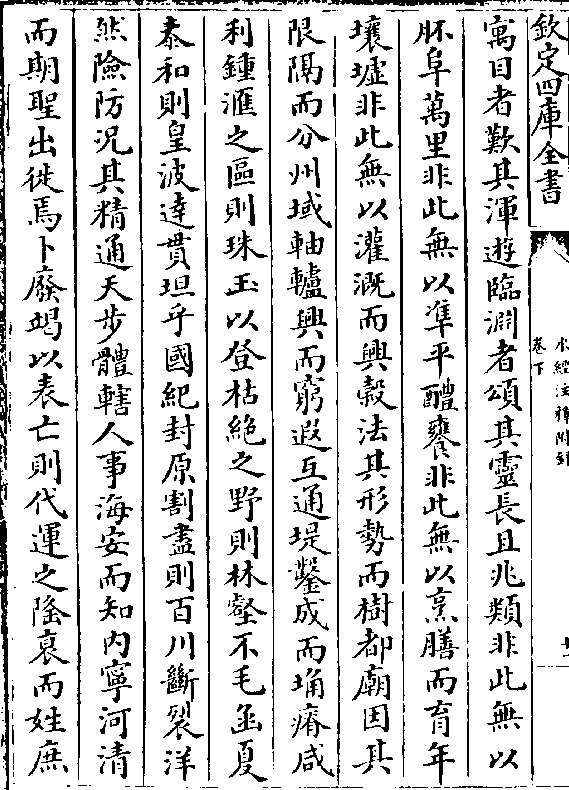 欽定四庫全書
水經注釋附録
卷下
寓目者歎其渾逰臨淵者頌其靈長且兆類非此無以
胚阜萬里非此無以凖平醴餐非此無以烹膳而育年
壤墟非此無以灌溉而興穀法其形勢而樹都廟因其
限隔而分州域軸轤興而窮遐互通堤鑿成而埆瘠咸
利鍾滙之區則珠玉以登枯絶之野則林壑不毛函夏
泰和則皇波達貫坦乎國紀封原割盡則百川斷裂洋
然險防况其精通天步體轄人事海安而知内寧河清
而期聖出徙焉卜廢竭以表亡則代運之隆衰而姓庶